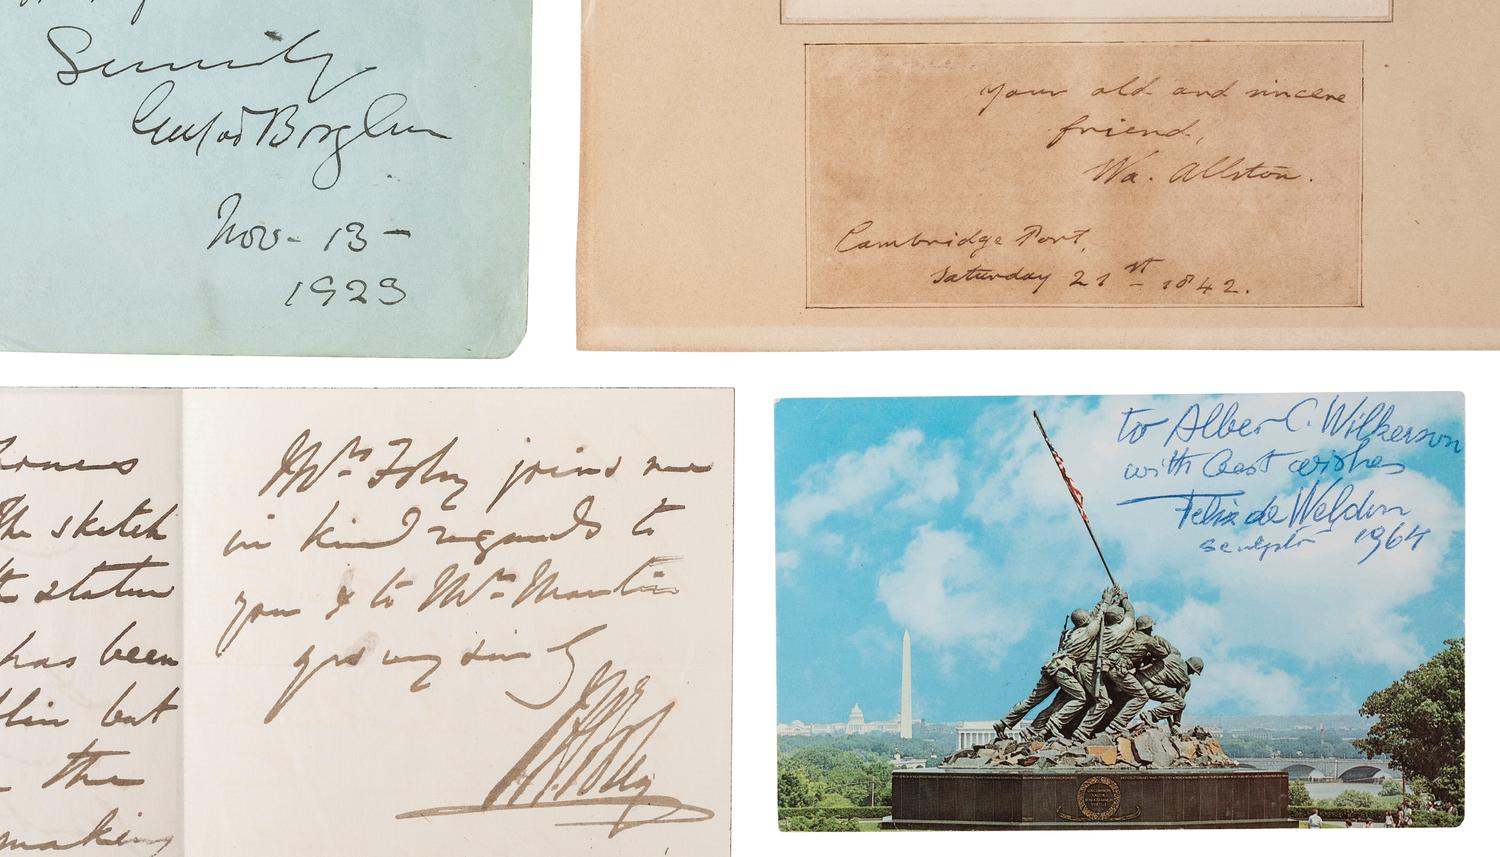 Sincerely
Gutzon Borglum
Nov - 13 -
1923
your old and sincere
friend,
Wa. Allston.
Cambridge Port,
Saturday 21st 1842.
The sketch
statue
has been
but
the
making
Mrs Foley joins me
in kind regards to
you & to Mrs
yrs very sincly
J H Foley
to Alber C. Wilkerson
with best wishes
Felix de Weldon
sculptor 1964
UNCOMMON
VALOR
WAS A COMMON
VIRTUE